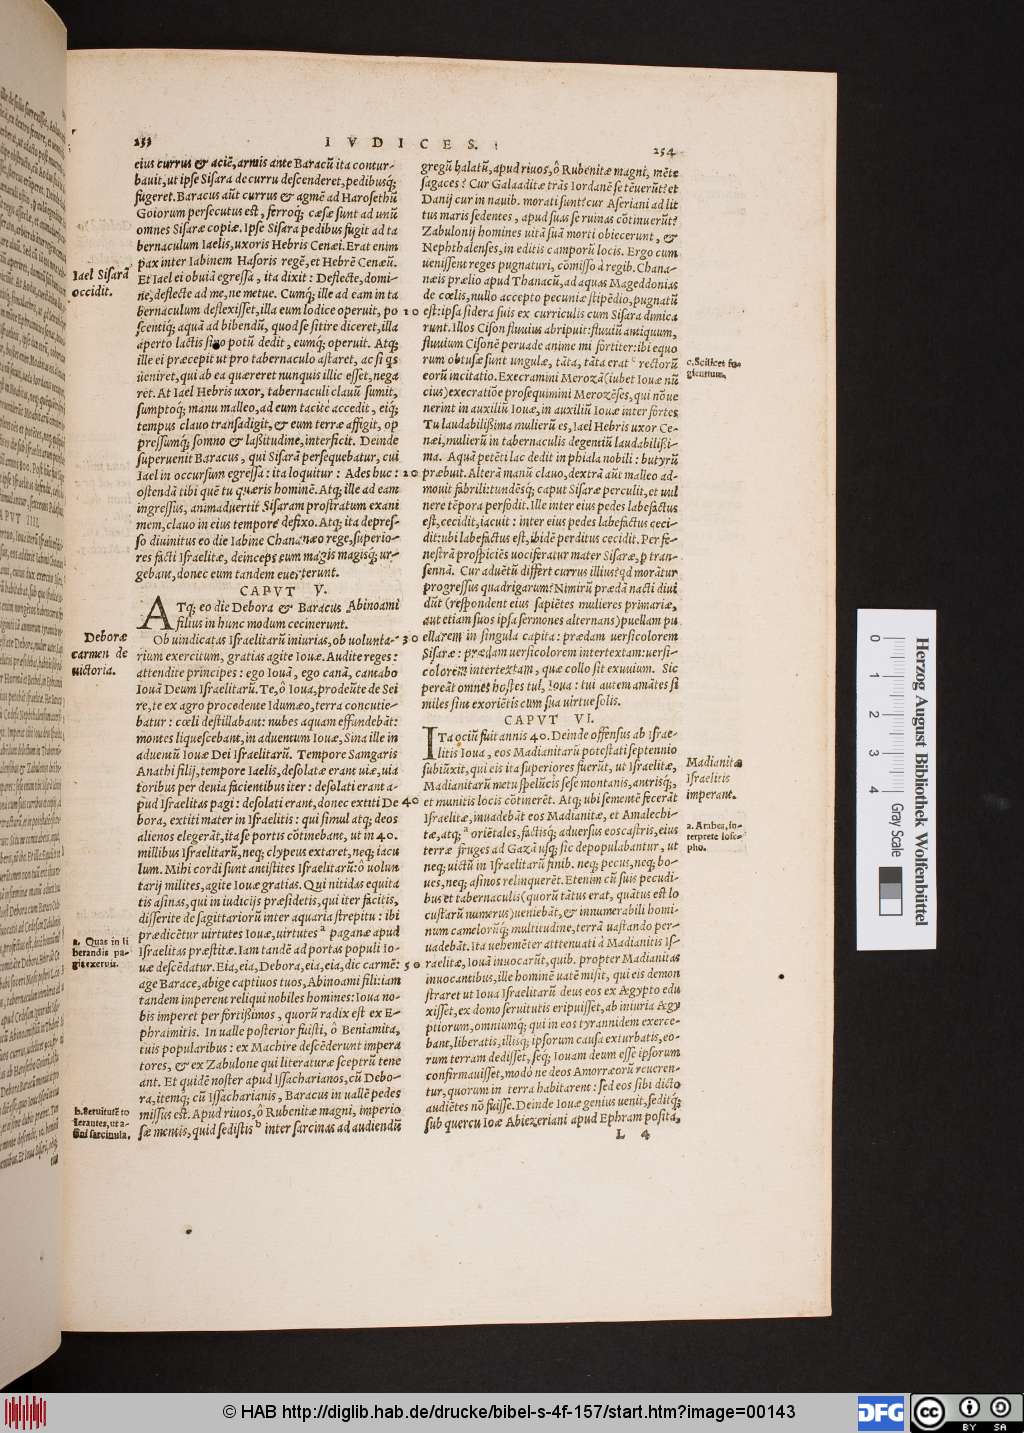 253 IVDICES. 254
eius currus & aciē, armis ante Baracū ita contur-
bauit, ut ipse Sisara de curru descenderet, pedibusq́;
fugeret. Baracus aūt currus & agmē ad Harosethū
Goiorum persecutus est, ferroq́; cæsæ sunt ad unū
omnes Sisaræ copiæ. Ipse Sisara pedibus fugit ad ta
bernaculum Iaelis, uxoris Hebris Cenæi. Erat enim
pax inter Iabinem Hasoris regē, et Hebrē Cenæū.
Iael Sisarā
occidit.
Et Iael ei obuiā egressa, ita dixit: Deflecte, domi-
ne, deflecte ad me, ne metue. Cumq́; ille ad eam in ta
bernaculum deflexisset, illa eum lodice operuit, po
10
scentiq́; aquā ad bibendū, quod se sitire diceret, illa
aperto lactis sino potū dedit, eumq́; operuit. Atq́;
ille ei præcepit ut pro tabernaculo astaret, ac si q̄s
ueniret, qui ab ea quæreret nunquis illic esset, nega
ret. At Iael Hebris uxor, tabernaculi clauū sumit,
sumptoq́; manu malleo, ad eum tacitè accedit, eiq́;
tempus clauo transadigit, & eum terræ affigit, op
pressumq́; somno & lassitudine, interficit. Deinde
superuenit Baracus, qui Sisarā persequebatur, cui
Iael in occursum egressa: ita loquitur: Ades huc:
20
ostendā tibi quē tu quæris hominē. Atq́; ille ad eam
ingressus, animaduertit Sisaram prostratum exani
mem, clauo in eius tempore defixo. Atq́; ita depres-
so diuinitus eo die Iabine Chananæo rege, superio-
res facti Israelitæ, deinceps eum magis magisq́; ur-
gebant, donec eum tandem euerterunt.
CAPVT V.
ATq́; eo die Debora & Baracus Abinoami
filius in hunc modum cecinerunt.
Deboræ
carmen de
uictoria.
Ob uindicatas Israelitarū iniurias, ob uolunta-
30
rium exercitum, gratias agite Iouæ. Audite reges:
attendite principes: ego Iouā, ego canā, cantabo
Iouā Deum Israelitarū. Te, ô Ioua, prodeūte de Sei
re, te ex agro procedente Idumæo, terra concutie-
batur: cœli destillabant: nubes aquam effundebāt:
montes liquescebant, in aduentum Iouæ, Sina ille in
aduentū Iouæ Dei Israelitarū. Tempore Samgaris
Anathi filij, tempore Iaelis, desolatæ erant uiæ, uia
toribus per deuia facientibus iter: desolati erant a-
pud Israelitas pagi: desolati erant, donec extiti De
40
bora, extiti mater in Israelitis: qui simul atq́; deos
alienos elegerāt, ita se portis cōtinebant, ut in 40.
millibus Israelitarū, neq́; clypeus extaret, neq́; iacu
lum. Mihi cordi sunt antistites Israelitarū: ô uolun
tarij milites, agite Iouæ gratias. Qui nitidas equita
tis asinas, qui in iudicijs præsidetis, qui iter facitis,
disserite de sagittariorū inter aquaria strepitu: ibi
prædicētur uirtutes Iouæ, uirtutes a paganæ apud
a. Quas in li
berandis pa-
gis exeruit.
Israelitas præstitæ. Iam tandē ad portas populi Io-
uæ descēdatur. Eia, eia, Debora, eia, eia, dic carmē:
50
age Barace, abige captiuos tuos, Abinoami fili: iam
tandem imperent reliqui nobiles homines: Ioua no-
bis imperet per fortissimos, quorū radix est ex E-
phraimitis. In ualle posterior fuisti, ô Beniamita,
tuis popularibus: ex Machire descēderunt impera
tores, & ex Zabulone qui literaturæ sceptrū tene
ant. Et quidē noster apud Issacharianos, cū Debo-
ra, itemq́; cū Issacharianis, Baracus in uallē pedes
b. Seruitutē to
lerantes, ut a-
sini sarcinula.
missus est. Apud riuos, ô Rubenitæ magni, imperio
sæ mentis, quid sedistis b inter sarcinas ad audiendū
gregū balatū, apud riuos, ô Rubenitæ magni, mētæ
sagaces? Cur Galaaditæ trās Iordanē se tēuerūt? et
Danij cur in nauib. morati sunt? cur Aseriani ad lit
tus maris sedentes, apud suas se ruinas cōtinuerūt?
Zabulonij homines uitā suā morti obiecerunt, &
Nephthalenses, in editis camporū locis. Ergo cum
uenissent reges pugnaturi, cōmisso à regib. Chana-
næis prælio apud Thanacū, ad aquas Mageddonias
de cœlis, nullo accepto pecuniæ stipēdio, pugnatū
est: ipsa sidera suis ex curriculis cum Sisara dimica
runt. Illos Cison fluuius abripuit: fluuiū antiquum,
fluuium Cisonē peruade anime mi fortiter: ibi equo
rum obtusæ sunt ungulæ, tāta, tāta erat c rectorū
c. Scilicet fu-
gientium.
eorū incitatio. Execramini Merozā (iubet Iouæ nū
cius) execratiōe prosequimini Merozēses, qui nō ue
nerint in auxiliū Iouæ, in auxiliū Iouæ inter fortes
Tu laudabilissima mulierū es, Iael Hebris uxor Ce-
næi, mulierū in tabernaculis degentiū laudabilissi-
ma. Aquā petēti lac dedit in phiala nobili: butyrū
præbuit. Alterā manū clauo, dextrā aūt malleo ad-
mouit fabrili: tundēsq́; caput Sisaræ perculit, et uul
nere tēpora perfodit. Ille inter eius pedes labefactus
est, cecidit, iacuit: inter eius pedes labefactus ceci-
dit: ubi labefactus est, ibidē perditus cecidit. Per fe-
nestrā prospiciēs uociferatur mater Sisaræ, p tran-
sennā. Cur aduētū differt currus illius? qd moratur
progressus quadrigarum? Nimirū prædā nacti diui
dūt (respondent eius sapiētes mulieres primariæ,
aut etiam suos ipsa sermones alternans) puellam pu
ellarem in singula capita: prædam uersicolorem
Sisaræ: prædam uersicolorem intertextam: uersi-
colorem intertextam, quæ collo sit exuuium. Sic
pereāt omnes hostes tui, Ioua: tui autem amātes si
miles sint exoriētis cum sua uirtue solis.
CAPVT VI.
ITa ociū fuit annis 40. Deinde offensus ab Israe-
litis Ioua, eos Madianitarū potestati septennio
Madianitæ
Israelitis
imperant.
subiūxit, qui eis ita superiores fuerūt, ut Israelitæ,
Madianitarū metu spelūcis sese montanis, antrisq́;,
et munitis locis cōtinerēt. Atq́; ubi sementē fecerāt
Israelitæ, inuadebāt eos Madianitæ, et Amalechi-
tæ, atq́; a oriētales, factisq́; aduersus eos castris, eius
a. Arabes, in-
terprete Iose-
pho.
terræ fruges ad Gazā usq́; sic depopulabantur, ut
neq́; uictū in Israelitarū finib. neq́; pecus, neq́; bo-
ues, neq́; asinos relinquerēt. Etenim cū suis pecudi-
bus et tabernaculis (quorū tātus erat, quātus est lo
custarū numerus) ueniebāt, & innumerabili homi-
num camelorūq́; multitudine, terrā uastando per-
uadebāt. Ita uehemēter attenuati à Madianitis Is-
raelitæ, Iouā inuocarūt, quib. propter Madianitas
inuocantibus, ille hominē uatē misit, qui eis demon
straret ut Ioua Israelitarū deus eos ex Ægypto edu
xisset, ex domo seruitutis eripuisset, ab iniuria Ægy
ptiorum, omniumq́; qui in eos tyrannidem exerce-
bant, liberatis, illisq́; ipsorum causa exturbatis, eo-
rum terram dedisset, seq́; Iouam deum esse ipsorum
confirmauisset, modò ne deos Amorræorū reueren-
tur, quorum in terra habitarent: sed eos sibi dicto
audiētes nō fuisse. Deinde Iouæ genius uenit, seditq́;
sub quercu Ioæ Abiezeriani apud Ephram posita,
L 4
0 1 2 3 4
Gray Scale
Herzog August Bibliothek Wolfenbüttel
© HAB http://diglib.hab.de/drucke/bibel-s-4f-157/start.htm?image=00143
DFG
cc BY SA